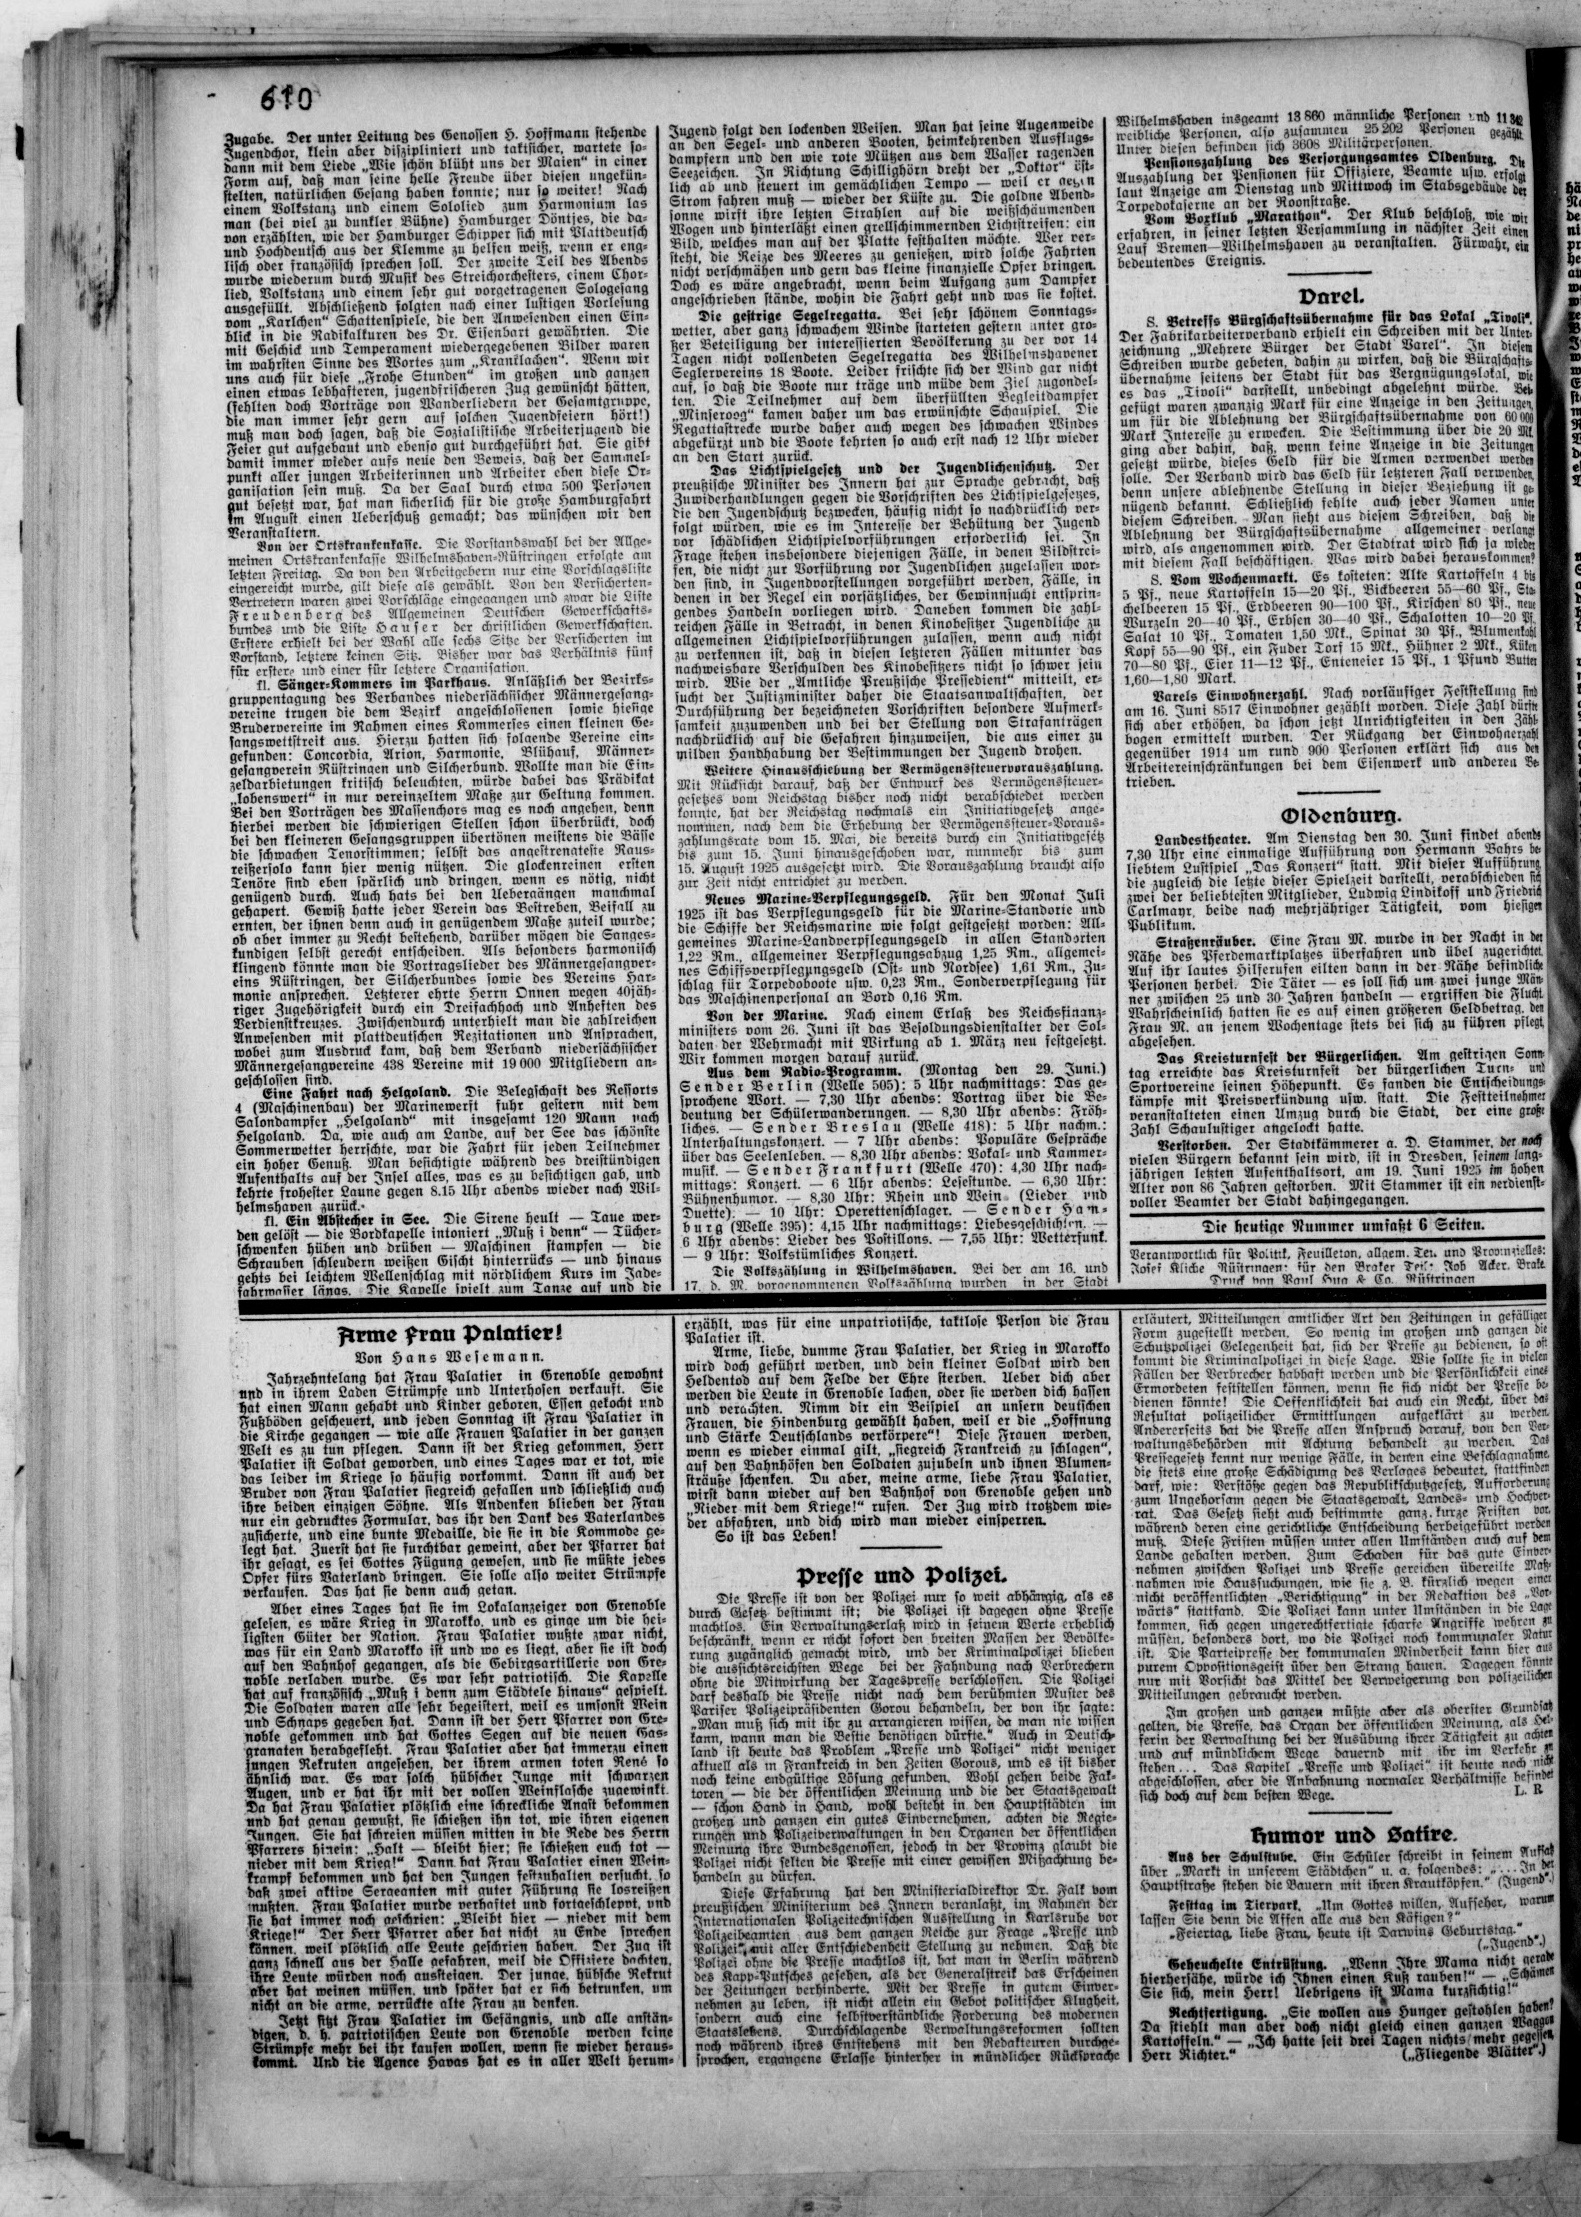 610
Zugabe. Der unter Leitung des Genossen H. Hoffmann stehende
Jugendchor, klein aber diszipliniert und taktsicher, wartete so-
dann mit dem Liede „Wie schön blüht uns der Maien“ in einer
Form auf, daß man seine helle Freude über diesen ungekün-
stelten, natürlichen Gesang haben konnte; nur so weiter! Nach
einem Volkstanz und einem Sololied zum Harmonium las
man (bei viel zu dunkler Bühne) Hamburger Döntjes, die da-
von erzählten, wie der Hamburger Schipper sich mit Plattdeutsch
und Hochdeutsch aus der Klemme zu helfen weiß, wenn er eng-
lisch oder französisch sprechen soll. Der zweite Teil des Abends
wurde wiederum durch Musik des Streichorchesters, einem Chor-
lied, Volkstanz und einem sehr gut vorgetragenen Sologesang
ausgefüllt. Abschließend folgten nach einer lustigen Vorlesung
vom „Karlchen“ Schattenspiele, die den Anwesenden einen Ein-
blick in die Radikalkuren des Dr. Eisenbart gewährten. Die
mit Geschick und Temperament wiedergegebenen Bilder waren
im wahrsten Sinne des Wortes zum „Kranklachen“. Wenn wir
uns auch für diese „Frohe Stunden“ im großen und ganzen
einen etwas lebhafteren, jugendfrischeren Zug gewünscht hätten,
(fehlten doch Vorträge von Wanderliedern der Gesamtgruppe,
die man immer sehr gern auf solchen Jugendfeiern hört!)
muß man doch sagen, daß die Sozialistische Arbeiterjugend die
Feier gut aufgebaut und ebenso gut durchgeführt hat. Sie gibt
damit immer wieder aufs neue den Beweis, daß der Sammel-
punkt aller jungen Arbeiterinnen und Arbeiter eben diese Or-
ganisation sein muß. Da der Saal durch etwa 500 Personen
gut besetzt war, hat man sicherlich für die große Hamburgfahrt
im August einen Ueberschuß gemacht; das wünschen wir den
Veranstaltern.
Von der Ortskrankenkasse. Die Vorstandswahl bei der Allge-
meinen Ortskrankenkasse Wilhelmshaven-Rüstringen erfolgte am
letzten Freitag. Da von den Arbeitgebern nur eine Vorschlagsliste
eingereicht wurde, gilt diese als gewählt. Von den Versicherten-
Vertretern waren zwei Vorschläge eingegangen und zwar die Liste
Freudenberg des Allgemeinen Deutschen Gewerkschafts-
bundes und die Liste Hauser der christlichen Gewerkschaften.
Erstere erhielt bei der Wahl alle sechs Sitze der Versicherten im
Vorstand, letztere keinen Sitz. Bisher war das Verhältnis fünf
für erstere und einer für letztere Organisation.
fl. Sänger-Kommers im Parkhaus. Anläßlich der Bezirks-
gruppentagung des Verbandes niedersächsischer Männergesang-
vereine trugen die dem Bezirk angeschlossenen sowie hiesige
Brudervereine im Rahmen eines Kommerses einen kleinen Ge-
sangswettstreit aus. Hierzu hatten sich folgende Vereine ein-
gefunden: Concordia, Arion, Harmonie, Blühauf, Männer-
gesangverein Rüstringen und Silcherbund. Wollte man die Ein-
zeldarbietungen kritisch beleuchten, würde dabei das Prädikat
„lobenswert“ in nur vereinzeltem Maße zur Geltung kommen.
Bei den Vorträgen des Massenchors mag es noch angehen, denn
hierbei werden die schwierigen Stellen schon überbrückt, doch
bei den kleineren Gesangsgruppen übertönen meistens die Bässe
die schwachen Tenorstimmen; selbst das angestrengteste Raus-
reißersolo kann hier wenig nützen. Die glockenreinen ersten
Tenöre sind eben spärlich und dringen, wenn es nötig, nicht
genügend durch. Auch hats bei den Uebergängen manchmal
gehapert. Gewiß hatte jeder Verein das Bestreben, Beifall zu
ernten, der ihnen denn auch in genügendem Maße zuteil wurde;
ob aber immer zu Recht bestehend, darüber mögen die Sanges-
kundigen selbst gerecht entscheiden. Als besonders harmonisch
klingend könnte man die Vortragslieder des Männergesangver-
eins Rüstringen, der Silcherbundes sowie des Vereins Har-
monie ansprechen. Letzterer ehrte Herrn Onnen wegen 40jäh-
riger Zugehörigkeit durch ein Dreifachhoch und Anheften des
Verdienstkreuzes. Zwischendurch unterhielt man die zahlreichen
Anwesenden mit plattdeutschen Rezitationen und Ansprachen,
wobei zum Ausdruck kam, daß dem Verband niedersächsischer
Männergesangvereine 438 Vereine mit 19 000 Mitgliedern an-
geschlossen sind.
Eine Fahrt nach Helgoland. Die Belegschaft des Ressorts
4 (Maschinenbau) der Marinewerft fuhr gestern mit dem
Salondampfer „Helgoland“ mit insgesamt 120 Mann nach
Helgoland. Da, wie auch am Lande, auf der See das schönste
Sommerwetter herrschte, war die Fahrt für jeden Teilnehmer
ein hoher Genuß. Man besichtigte während des dreistündigen
Aufenthalts auf der Insel alles, was es zu besichtigen gab, und
kehrte frohester Laune gegen 8.15 Uhr abends wieder nach Wil-
helmshaven zurück.
fl. Ein Abstecher in See. Die Sirene heult — Taue wer-
den gelöst — die Bordkapelle intoniert „Muß i denn“ — Tücher-
schwenken hüben und drüben — Maschinen stampfen — die
Schrauben schleudern weißen Gischt hinterrücks — und hinaus
gehts bei leichtem Wellenschlag mit nördlichem Kurs im Jade-
fahrwasser längs. Die Kapelle spielt zum Tanze auf und die
Jugend folgt den lockenden Weisen. Man hat seine Augenweide
an den Segel- und anderen Booten, heimkehrenden Ausflugs-
dampfern und den wie rote Mützen aus dem Wasser ragenden
Seezeichen. In Richtung Schillighörn dreht der „Doktor“ öst-
lich ab und steuert im gemächlichen Tempo — weil er gegen
Strom fahren muß — wieder der Küste zu. Die goldne Abend-
sonne wirft ihre letzten Strahlen auf die weißschäumenden
Wogen und hinterläßt einen grellschimmernden Lichtstreifen: ein
Bild, welches man auf der Platte festhalten möchte. Wer ver-
steht, die Reize des Meeres zu genießen, wird solche Fahrten
nicht verschmähen und gern das kleine finanzielle Opfer bringen.
Doch es wäre angebracht, wenn beim Aufgang zum Dampfer
angeschrieben stände, wohin die Fahrt geht und was sie kostet.
Die gestrige Segelregatta. Bei sehr schönem Sonntags-
wetter, aber ganz schwachem Winde starteten gestern unter gro-
ßer Beteiligung der interessierten Bevölkerung zu der vor 14
Tagen nicht vollendeten Segelregatta des Wilhelmshavener
Seglervereins 18 Boote. Leider frischte sich der Wind gar nicht
auf, so daß die Boote nur träge und müde dem Ziel zugondel-
ten. Die Teilnehmer auf dem überfüllten Begleitdampfer
„Minseroog“ kamen daher um das erwünschte Schauspiel. Die
Regattastrecke wurde daher auch wegen des schwachen Windes
abgekürzt und die Boote kehrten so auch erst nach 12 Uhr wieder
an den Start zurück.
Das Lichtspielgesetz und der Jugendlichenschutz. Der
preußische Minister des Innern hat zur Sprache gebracht, daß
Zuwiderhandlungen gegen die Vorschriften des Lichtspielgesetzes,
die den Jugendschutz bezwecken, häufig nicht so nachdrücklich ver-
folgt würden, wie es im Interesse der Behütung der Jugend
vor schädlichen Lichtspielvorführungen erforderlich sei. In
Frage stehen insbesondere diejenigen Fälle, in denen Bildstrei-
fen, die nicht zur Vorführung vor Jugendlichen zugelassen wor-
den sind, in Jugendvorstellungen vorgeführt werden, Fälle, in
denen in der Regel ein vorsätzliches, der Gewinnsucht entsprin-
gendes Handeln vorliegen wird. Daneben kommen die zahl-
reichen Fälle in Betracht, in denen Kinobesitzer Jugendliche zu
allgemeinen Lichtspielvorführungen zulassen, wenn auch nicht
zu verkennen ist, daß in diesen letzteren Fällen mitunter das
nachweisbare Verschulden des Kinobesitzers nicht so schwer sein
wird. Wie der „Amtliche Preußische Pressedient“ mitteilt, er-
sucht der Justizminister daher die Staatsanwaltschaften, der
Durchführung der bezeichneten Vorschriften besondere Aufmerk-
samkeit zuzuwenden und bei der Stellung von Strafanträgen
nachdrücklich auf die Gefahren hinzuweisen, die aus einer zu
milden Handhabung der Bestimmungen der Jugend drohen.
Weitere Hinausschiebung der Vermögenssteuervorauszahlung.
Mit Rücksicht darauf, daß der Entwurf des Vermögenssteuer-
gesetzes vom Reichstag bisher noch nicht verabschiedet werden
konnte, hat der Reichstag nochmals ein Initiativgesetz ange-
nommen, nach dem die Erhebung der Vermögenssteuer-Voraus-
zahlungsrate vom 15. Mai, die bereits durch ein Initiativgesetz
bis zum 15. Juni hinausgeschoben war, nunmehr bis zum
15. August 1925 ausgesetzt wird. Die Vorauszahlung braucht also
zur Zeit nicht entrichtet zu werden.
Neues Marine-Verpflegungsgeld. Für den Monat Juli
1925 ist das Verpflegungsgeld für die Marine-Standorte und
die Schiffe der Reichsmarine wie folgt gestgesetzt worden: All-
gemeines Marine-Landverpflegungsgeld in allen Standorten
1,22 Rm., allgemeiner Verpflegungsabzug 1,25 Rm., allgemei-
nes Schiffsverpflegungsgeld (Ost- und Nordsee) 1,61 Rm., Zu-
schlag für Torpedoboote usw. 0,23 Rm., Sonderverpflegung für
das Maschinenpersonal an Bord 0,16 Rm.
Von der Marine. Nach einem Erlaß des Reichsfinanz-
ministers vom 26. Juni ist das Besoldungsdienstalter der Sol-
daten der Wehrmacht mit Wirkung ab 1. März neu festgesetzt.
Wir kommen morgen darauf zurück.
Aus dem Radio-Programm. (Montag den 29. Juni.)
Sender Berlin (Welle 505): 5 Uhr nachmittags: Das ge-
sprochene Wort. — 7,30 Uhr abends: Vortrag über die Be-
deutung der Schülerwanderungen. — 8,30 Uhr abends: Fröh-
liches. — Sender Breslau (Welle 418): 5 Uhr nachm.:
Unterhaltungskonzert. — 7 Uhr abends: Populäre Gespräche
über das Seelenleben. — 8,30 Uhr abends: Vokal- und Kammer-
musik. — Sender Frankfurt (Welle 470): 4,30 Uhr nach-
mittags: Konzert. — 6 Uhr abends: Lesestunde. — 6,30 Uhr:
Bühnenhumor. — 8,30 Uhr: Rhein und Wein (Lieder und
Duette). — 10 Uhr: Operettenschlager. — Sender Ham-
burg (Welle 395): 4,15 Uhr nachmittags: Liebesgeschichten. —
6 Uhr abends: Lieder des Postillons. — 7,55 Uhr: Wetterfunk.
— 9 Uhr: Volkstümliches Konzert.
Die Volkszählung in Wilhelmshaven. Bei der am 16. und
17. d. M. vorgenommenen Volkszählung wurden in der Stadt
Wilhelmshaven insgeamt 13 860 männliche Personen und 11 342
weibliche Personen, also zusammen 25 202 Personen gezählt.
Unter diesen befinden sich 3608 Militärpersonen.
Pensionszahlung des Versorgungsamtes Oldenburg. Die
Auszahlung der Pensionen für Offiziere, Beamte usw. erfolgt
laut Anzeige am Dienstag und Mittwoch im Stabsgebäude der
Torpedokaserne an der Roonstraße.
Vom Boxklub „Marathon“. Der Klub beschloß, wie wir
erfahren, in seiner letzten Versammlung in nächster Zeit einen
Lauf Bremen—Wilhelmshaven zu veranstalten. Fürwahr, ein
bedeutendes Ereignis.
Varel.
S. Betreffs Bürgschaftsübernahme für das Lokal „Tivoli“.
Der Fabrikarbeiterverband erhielt ein Schreiben mit der Unter-
zeichnung „Mehrere Bürger der Stadt Varel“. In diesem
Schreiben wurde gebeten, dahin zu wirken, daß die Bürgschafts-
übernahme seitens der Stadt für das Vergnügungslokal, wie
es das „Tivoli“ darstellt, unbedingt abgelehnt würde. Bei-
gefügt waren zwanzig Mark für eine Anzeige in den Zeitungen,
um für die Ablehnung der Bürgschaftsübernahme von 60 000
Mark Interesse zu erwecken. Die Bestimmung über die 20 Mk.
ging aber dahin, daß, wenn keine Anzeige in die Zeitungen
gesetzt würde, dieses Geld für die Armen verwendet werden
solle. Der Verband wird das Geld für letzteren Fall verwenden,
denn unsere ablehnende Stellung in dieser Beziehung ist ge-
nügend bekannt. Schließlich fehlte auch jeder Namen unter
diesem Schreiben. Man sieht aus diesem Schreiben, daß die
Ablehnung der Bürgschaftsübernahme allgemeiner verlangt
wird, als angenommen wird. Der Stadtrat wird sich ja wieder
mit diesem Fall beschäftigen. Was wird dabei herauskommen?
S. Vom Wochenmarkt. Es kosteten: Alte Kartoffeln 4 bis
5 Pf., neue Kartoffeln 15—20 Pf., Bickbeeren 55—60 Pf., Sta-
chelbeeren 15 Pf., Erdbeeren 90—100 Pf., Kirschen 80 Pf., neue
Wurzeln 20—40 Pf., Erbsen 30—40 Pf., Schalotten 10—20 Pf.,
Salat 10 Pf., Tomaten 1,50 Mk., Spinat 30 Pf., Blumenkohl
Kopf 55—90 Pf., ein Fuder Torf 15 Mk., Hühner 2 Mk., Küken
70—80 Pf., Eier 11—12 Pf., Enteneier 15 Pf., 1 Pfund Butter
1,60—1,80 Mark.
Varels Einwohnerzahl. Nach vorläufiger Feststellung sind
am 16. Juni 8517 Einwohner gezählt worden. Diese Zahl dürfte
sich aber erhöhen, da schon jetzt Unrichtigkeiten in den Zähl-
bogen ermittelt wurden. Der Rückgang der Einwohnerzahl
gegenüber 1914 um rund 900 Personen erklärt sich aus den
Arbeitereinschränkungen bei dem Eisenwerk und anderen Be-
trieben.
Oldenburg.
Landestheater. Am Dienstag den 30. Juni findet abends
7,30 Uhr eine einmalige Aufführung von Hermann Bahrs be-
liebtem Lustspiel „Das Konzert“ statt. Mit dieser Aufführung,
die zugleich die letzte dieser Spielzeit darstellt, verabschieden sich
zwei der beliebtesten Mitglieder, Ludwig Lindikoff und Friedrich
Carlmayr, beide nach mehrjähriger Tätigkeit, vom hiesigen
Publikum.
Straßenräuber. Eine Frau M. wurde in der Nacht in der
Nähe des Pferdemarktplatzes überfahren und übel zugerichtet.
Auf ihr lautes Hilferufen eilten dann in der Nähe befindliche
Personen herbei. Die Täter — es soll sich um zwei junge Män-
ner zwischen 25 und 30 Jahren handeln — ergriffen die Flucht.
Wahrscheinlich hatten sie es auf einen größeren Geldbetrag, den
Frau M. an jenem Wochentage stets bei sich zu führen pflegt,
abgesehen.
Das Kreisturnfest der Bürgerlichen. Am gestrigen Sonn-
tag erreichte das Kreisturnfest der bürgerlichen Turn- und
Sportvereine seinen Höhepunkt. Es fanden die Entscheidungs-
kämpfe mit Preisverkündung usw. statt. Die Festteilnehmer
veranstalteten einen Umzug durch die Stadt, der eine große
Zahl Schaulustiger angelockt hatte.
Verstorben. Der Stadtkämmerer a. D. Stammer, der noch
vielen Bürgern bekannt sein wird, ist in Dresden, seinem lang-
jährigen letzten Aufenthaltsort, am 19. Juni 1925 im hohen
Alter von 86 Jahren gestorben. Mit Stammer ist ein verdienst-
voller Beamter der Stadt dahingegangen.
Die heutige Nummer umfaßt 6 Seiten.
Verantwortlich für Politik, Feuilleton, allgem. Teil und Provinzielles:
Josef Kliche Rüstringen; für den Braker Teil: Joh Acker, Brake
Druck von Paul Hug & Co. Rüstringen
Arme Frau Palatier!
Von Hans Wesemann.
Jahrzehntelang hat Frau Palatier in Grenoble gewohnt
und in ihrem Laden Strümpfe und Unterhosen verkauft. Sie
hat einen Mann gehabt und Kinder geboren, Essen gekocht und
Fußböden gescheuert, und jeden Sonntag ist Frau Palatier in
die Kirche gegangen — wie alle Frauen Palatier in der ganzen
Welt es zu tun pflegen. Dann ist der Krieg gekommen, Herr
Palatier ist Soldat geworden, und eines Tages war er tot, wie
das leider im Kriege so häufig vorkommt. Dann ist auch der
Bruder von Frau Palatier siegreich gefallen und schließlich auch
ihre beiden einzigen Söhne. Als Andenken blieben der Frau
nur ein gedrucktes Formular, das ihr den Dank des Vaterlandes
zusicherte, und eine bunte Medaille, die sie in die Kommode ge-
legt hat. Zuerst hat sie furchtbar geweint, aber der Pfarrer hat
ihr gesagt, es sei Gottes Fügung gewesen, und sie müßte jedes
Opfer fürs Vaterland bringen. Sie solle also weiter Strümpfe
verkaufen. Das hat sie denn auch getan.
Aber eines Tages hat sie im Lokalanzeiger von Grenoble
gelesen, es wäre Krieg in Marokko, und es ginge um die hei-
ligsten Güter der Nation. Frau Palatier wußte zwar nicht,
was für ein Land Marokko ist und wo es liegt, aber sie ist doch
auf den Bahnhof gegangen, als die Gebirgsartillerie von Gre-
noble verladen wurde. Es war sehr patriotisch. Die Kapelle
hat auf französisch „Muß i denn zum Städtele hinaus“ gespielt.
Die Soldaten waren alle sehr begeistert, weil es umsonst Wein
und Schnaps gegeben hat. Dann ist der Herr Pfarrer von Gre-
noble gekommen und hat Gottes Segen auf die neuen Gas-
granaten herabgefleht. Frau Palatier aber hat immerzu einen
jungen Rekruten angesehen, der ihrem armen toten René so
ähnlich war. Es war solch hübscher Junge mit schwarzen
Augen, und er hat ihr mit der vollen Weinflasche zugewinkt.
Da hat Frau Palatier plötzlich eine schreckliche Angst bekommen
und hat genau gewußt, sie schießen ihn tot, wie ihren eigenen
Jungen. Sie hat schreien müssen mitten in die Rede des Herrn
Pfarrers hinein: „Halt — bleibt hier; sie schießen euch tot —
nieder mit dem Krieg!“ Dann hat Frau Palatier einen Wein-
krampf bekommen und hat den Jungen festzuhalten versucht, so
daß zwei aktive Sergeanten mit guter Führung sie losreißen
mußten. Frau Palatier wurde verhaftet und fortgeschleppt, und
sie hat immer noch geschrien: „Bleibt hier — nieder mit dem
Kriege!“ Der Herr Pfarrer aber hat nicht zu Ende sprechen
können, weil plötzlich alle Leute geschrien haben. Der Zug ist
ganz schnell aus der Halle gefahren, weil die Offiziere dachten,
ihre Leute würden noch aussteigen. Der junge, hübsche Rekrut
aber hat weinen müssen, und später hat er sich betrunken, um
nicht an die arme, verrückte alte Frau zu denken.
Jetzt sitzt Frau Palatier im Gefängnis, und alle anstän-
digen, d. h. patriotischen Leute von Grenoble werden keine
Strümpfe mehr bei ihr kaufen wollen, wenn sie wieder heraus-
kommt. Und die Agence Havas hat es in aller Welt herum-
erzählt, was für eine unpatriotische, taktlose Person die Frau
Palatier ist.
Arme, liebe, dumme Frau Palatier, der Krieg in Marokko
wird doch geführt werden, und dein kleiner Soldat wird den
Heldentod auf dem Felde der Ehre sterben. Ueber dich aber
werden die Leute in Grenoble lachen, oder sie werden dich hassen
und verachten. Nimm dir ein Beispiel an unsern deutschen
Frauen, die Hindenburg gewählt haben, weil er die „Hoffnung
und Stärke Deutschlands verkörpere“! Diese Frauen werden,
wenn es wieder einmal gilt, „siegreich Frankreich zu schlagen“,
auf den Bahnhöfen den Soldaten zujubeln und ihnen Blumen-
sträuße schenken. Du aber, meine arme, liebe Frau Palatier,
wirst dann wieder auf den Bahnhof von Grenoble gehen und
„Nieder mit dem Kriege!“ rufen. Der Zug wird trotzdem wie-
der abfahren, und dich wird man wieder einsperren.
So ist das Leben!
Presse und Polizei.
Die Presse ist von der Polizei nur so weit abhängig, als es
durch Gesetz bestimmt ist; die Polizei ist dagegen ohne Presse
machtlos. Ein Verwaltungserlaß wird in seinem Werte erheblich
beschränkt, wenn er nicht sofort den breiten Massen der Bevölke-
rung zugänglich gemacht wird, und der Kriminalpolizei blieben
die aussichtsreichsten Wege bei der Fahndung nach Verbrechern
ohne die Mitwirkung der Tagespresse verschlossen. Die Polizei
darf deshalb die Presse nicht nach dem berühmten Muster des
Pariser Polizeipräsidenten Gorou behandeln, der von ihr sagte:
„Man muß sich mit ihr zu arrangieren wissen, da man nie wissen
kann, wann man die Bestie benötigen dürfte.“ Auch in Deutsch-
land ist heute das Problem „Presse und Polizei“ nicht weniger
aktuell als in Frankreich in den Zeiten Gorous, und es ist bisher
noch keine endgültige Lösung gefunden. Wohl gehen beide Fak-
toren — die der öffentlichen Meinung und die der Staatsgewalt
— schon Hand in Hand, wohl besteht in den Hauptstädten im
großen und ganzen ein gutes Einvernehmen, achten die Regie-
rungen und Polizeiverwaltungen in den Organen der öffentlichen
Meinung ihre Bundesgenossen, jedoch in der Provinz glaubt die
Polizei nicht selten die Presse mit einer gewissen Mißachtung be-
handeln zu dürfen.
Diese Erfahrung hat den Ministerialdirektor Dr. Falk vom
preußischen Ministerium des Innern veranlaßt, im Rahmen der
Internationalen Polizeitechnischen Ausstellung in Karlsruhe vor
Polizeibeamten aus dem ganzen Reiche zur Frage „Presse und
Polizei“ mit aller Entschiedenheit Stellung zu nehmen. Daß die
Polizei ohne die Presse machtlos ist, hat man in Berlin während
des Kapp-Putsches gesehen, als der Generalstreik das Erscheinen
der Zeitungen verhinderte. Mit der Presse in gutem Einver-
nehmen zu leben, ist nicht allein ein Gebot politischer Klugheit,
sondern auch eine selbstverständliche Forderung des modernen
Staatslebens. Durchschlagende Verwaltungsreformen sollten
noch während ihres Entstehens mit den Redakteuren durchge-
sprochen, ergangene Erlasse hinterher in mündlicher Rücksprache
erläutert, Mitteilungen amtlicher Art den Zeitungen in gefälliger
Form zugestellt werden. So wenig im großen und ganzen die
Schutzpolizei Gelegenheit hat, sich der Presse zu bedienen, so oft
kommt die Kriminalpolizei in diese Lage. Wie sollte sie in vielen
Fällen der Verbrecher habhaft werden und die Persönlichkeit eines
Ermordeten feststellen können, wenn sie sich nicht der Presse be-
dienen könnte! Die Oeffentlichkeit hat auch ein Recht, über das
Resultat polizeilicher Ermittlungen aufgeklärt zu werden.
Andererseits hat die Presse allen Anspruch darauf, von den Ver-
waltungsbehörden mit Achtung behandelt zu werden. Das
Pressegesetz kennt nur wenige Fälle, in denen eine Beschlagnahme,
die stets eine große Schädigung des Verlages bedeutet, stattfinden
darf, wie: Verstöße gegen das Republikschutzgesetz, Aufforderung
zum Ungehorsam gegen die Staatsgewalt, Landes- und Hochver-
rat. Das Gesetz sieht auch bestimmte ganz kurze Fristen vor,
während deren eine gerichtliche Entscheidung herbeigeführt werden
muß. Diese Fristen müssen unter allen Umständen auch auf dem
Lande gehalten werden. Zum Schaden für das gute Einver-
nehmen zwischen Polizei und Presse gereichen übereilte Maß-
nahmen wie Haussuchungen, wie sie z. B. kürzlich wegen einer
nicht veröffentlichten „Berichtigung“ in der Redaktion des „Vor-
wärts“ stattfand. Die Polizei kann unter Umständen in die Lage
kommen, sich gegen ungerechtfertigte scharfe Angriffe wehren zu
müssen, besonders dort, wo die Polizei noch kommunaler Natur
ist. Die Parteipresse der kommunalen Minderheit kann hier aus
purem Oppositionsgeist über den Strang hauen. Dagegen könnte
nur mit Vorsicht das Mittel der Verweigerung von polizeilichen
Mitteilungen gebraucht werden.
Im großen und ganzen müßte aber als oberster Grundsatz
gelten, die Presse, das Organ der öffentlichen Meinung, als Hel-
ferin der Verwaltung bei der Ausübung ihrer Tätigkeit zu achten
und auf mündlichem Wege dauernd mit ihr im Verkehr zu
stehen... Das Kapitel „Presse und Polizei“ ist heute noch nicht
abgeschlossen, aber die Anbahnung normaler Verhältnisse befindet
sich doch auf dem besten Wege. L. R
Humor und Satire.
Aus der Schulstube. Ein Schüler schreibt in seinem Aufsatz
über „Markt in unserem Städtchen“ u. a. folgendes: „... In der
Hauptstraße stehen die Bauern mit ihren Krautköpfen.“ (Jugend“.)
Festtag im Tierpark. „Um Gottes willen, Aufseher, warum
lassen Sie denn die Affen alle aus den Käfigen?“
„Feiertag, liebe Frau, heute ist Darwins Geburtstag.“
(„Jugend“.)
Geheuchelte Entrüstung. „Wenn Ihre Mama nicht gerade
hierhersähe, würde ich Ihnen einen Kuß rauben!“ — „Schämen
Sie sich, mein Herr! Uebrigens ist Mama kurzsichtig!“
Rechtfertigung. „Sie wollen aus Hunger gestohlen haben?
Da stiehlt man aber doch nicht gleich einen ganzen Waggon
Kartoffeln.“ — „Ich hatte seit drei Tagen nichts mehr gegessen,
Herr Richter.“ („Fliegende Blätter“.)